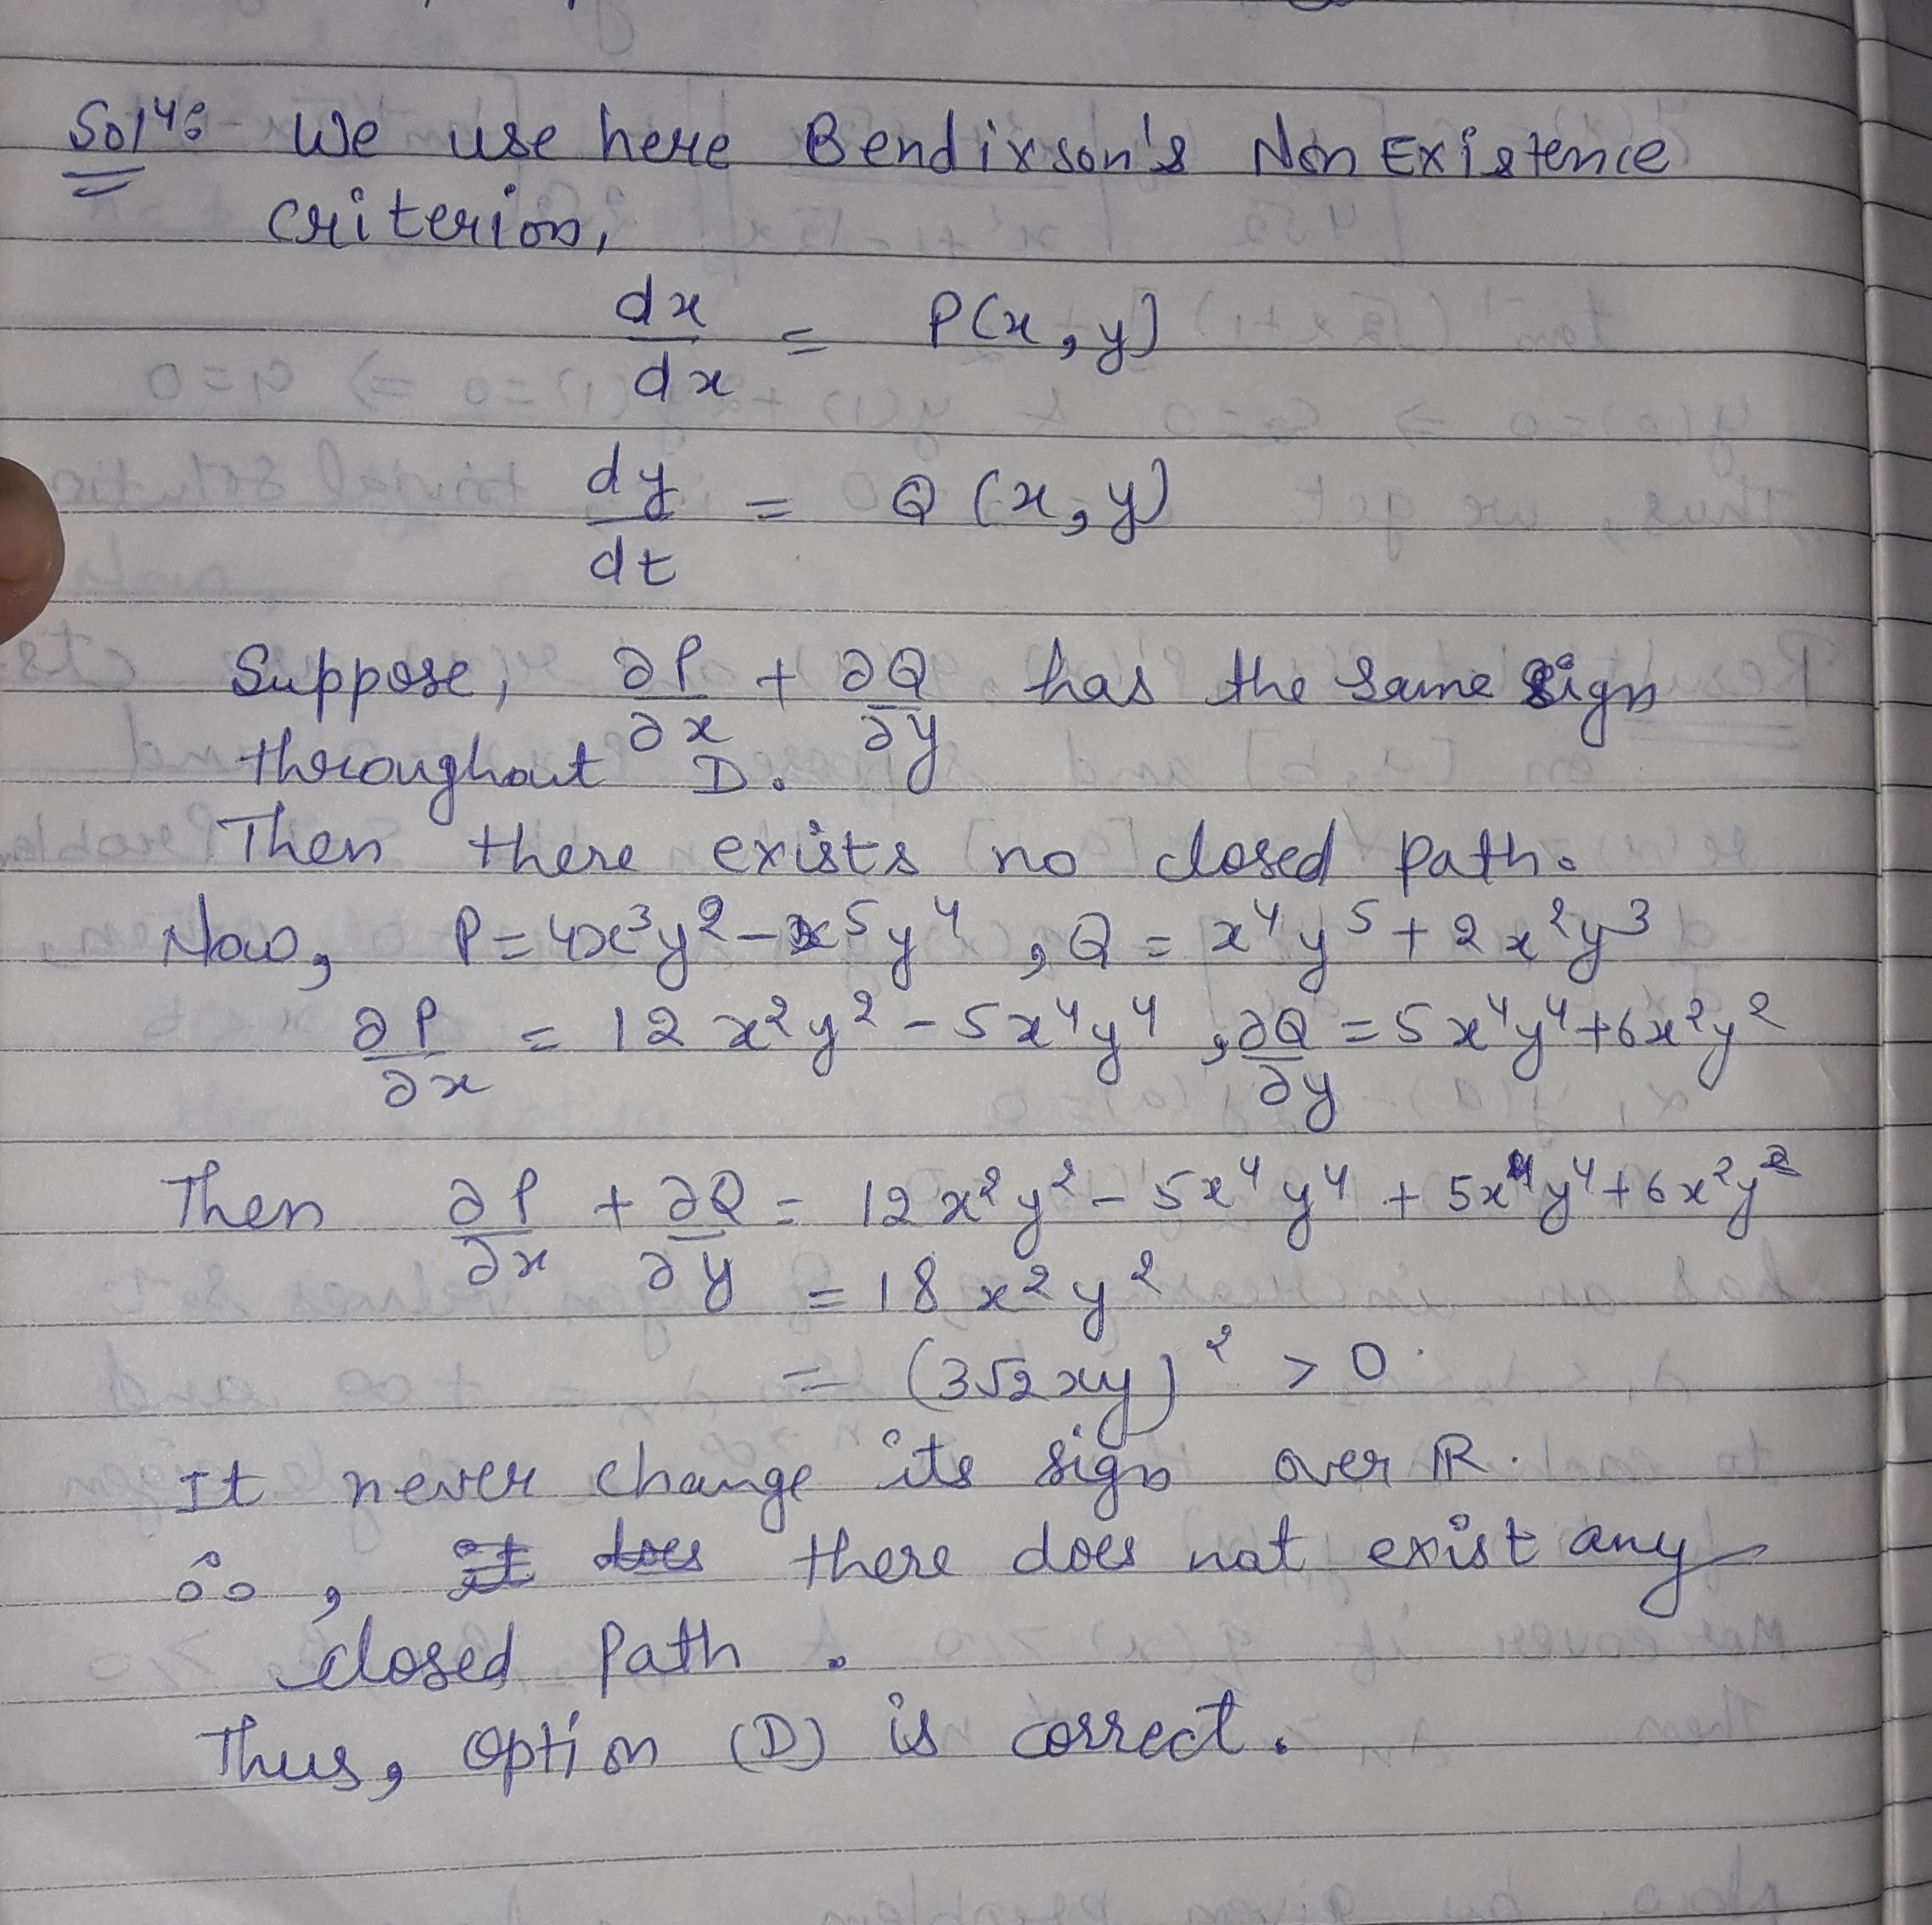 Sol⁴: We use here Bendixson's Non Existence
criterion,
dx/dx = P(x, y)
dy/dt = Q(x, y)
Suppose, ∂P/∂x + ∂Q/∂y has the same sign
throughout D.
Then there exists no closed path.
Now, P = 4x³y² - x⁵y⁴, Q = x⁴y⁵ + 2x²y³
∂P/∂x = 12x²y² - 5x⁴y⁴, ∂Q/∂y = 5x⁴y⁴ + 6x²y²
Then ∂P/∂x + ∂Q/∂y = 12x²y² - 5x⁴y⁴ + 5x⁴y⁴ + 6x²y²
= 18x²y²
= (3√2xy)² > 0.
It never change its sign over ℝ.
∴, it does there does not exist any
closed path.
Thus, option (D) is correct.